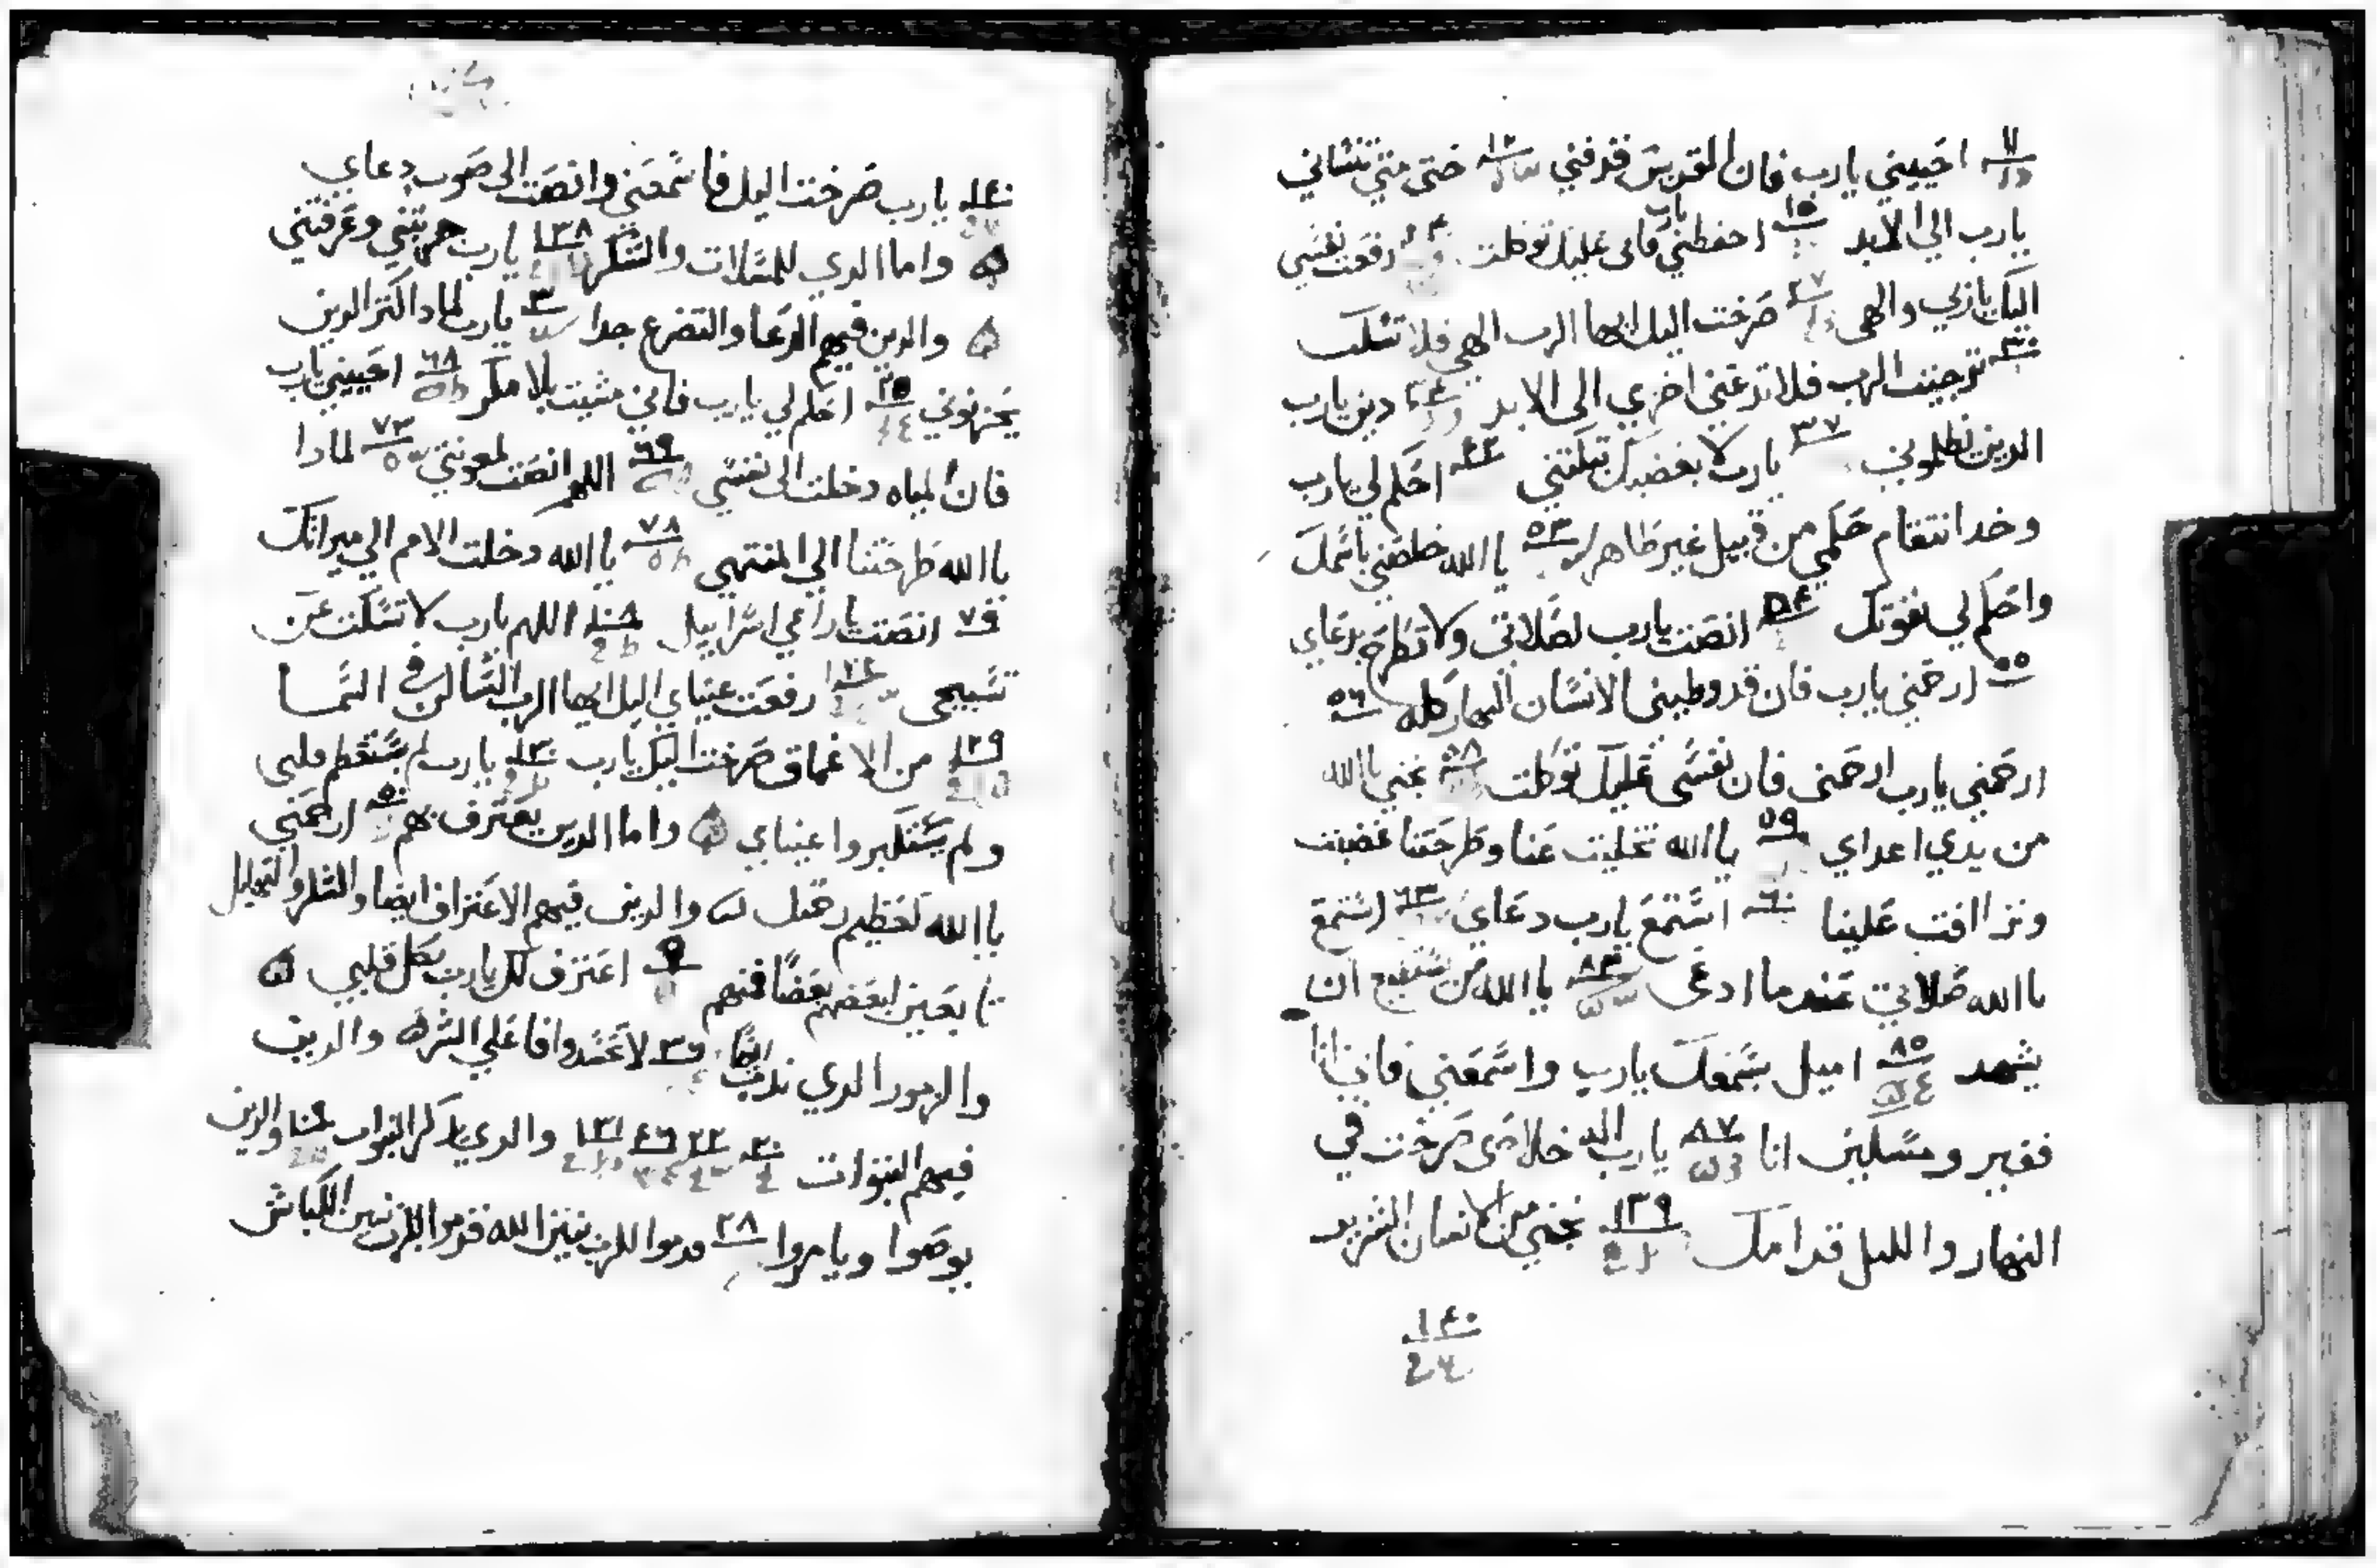 ١١ احييني يارب فان القديس قد فني ١٢ حتى متى تنساني
يارب الي الابد ١٥ احفظني يارب فاني عليك توكلت رفعت نفسي
اليك ياربي والهي ٢٧ صرخت اليك ايها الرب الهي فلا تسكت
٣٠ ترجيتك الرب فلا تدعني اخزي الى الابد ٣٤ دين يارب
الدين تظلموني ٣٧ يارب لا بغضبك تبكتني ٤٢ احكم لي يارب
وخد انتقام حكمي من قبيل غير طاهر ٥٣ ياالله خلصني باسمك
واحكم لي بقوتك ٥٤ انصت يارب لصلاتي ولا تطرح دعاي
٥٥ ارحمني يارب فان قد وطيني الانسان النهار كله ٥٦
ارحمني يارب ارحمني فان نفسي عليك توكلت ٥٨ نجني ياالله
من يدي اعداي ٥٩ ياالله تخليت عنا وطرحتنا غضبت
وتراافت علينا ٦٠ استمع يارب دعاي ٦٣ استمع
ياالله صلاتي عندما ادعى ٨٢ ياالله من
يشبهك ٨٥ اميل سمعك يارب واسمعني فاني انا
فقير ومسكين انا ٨٧ يارب اله خلاصي صرخت في
النهار والليل قدامك ١٣٩ نجني من الانسان الشرير
١٤٠
يارب صرخت اليك فاسمعني وانصت الى صوت دعاي
واما الدي للمسلات والشكر ١٣٨ يارب جربتني وعرفتني
والدين فيهم الدعا والتضرع جدا ٣ يارب لمادا كتر الدين
يحزنوني ٢٥ احكم لي يارب فاني مشيت بلا مكر ٦٨ احييني يارب
فان المياه دخلت الى نفسي ٦٩ اللهم انصت لمعونتي ٧٣ لمادا
ياالله طرحتنا الي المنتهي ٧٨ ياالله دخلت الامم الي ميراتك
٧٩ انصت ياراعي اسراييل اللهم يارب لا تسكت عن
تسبيحي رفعت عيناي اليك ايها الرب الساكن في السما
١٢٩ من الاعماق صرخت اليك يارب ١٣٠ يارب لم يستعظم قلبي
ولم يستكبروا عيناي واما الدين يعترف بهم ٥٠ ارحمني
ياالله لعظيم رحمتك والدين فيهم الاعتراف ايضا والشكر والتهليل
بعضهم بعضا فمنهم ٩ اعترف لك يارب بكل قلبي
والزمور الدي ايضا ٣٦ لا علي الشره والدين
فيهم النبوات ٣٠ ٢٣ ٤٦ ١٣١ والدي يدكر التواب والدين
يوصوا ويامروا ٢٨ قدموا للرب بنين الله قدموا للرب بنين الكباش